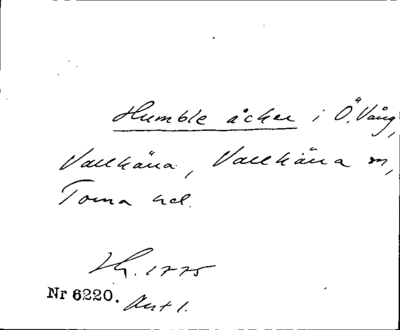 Humble åker i Ö. Vång,
Vallkärra, Vallkärra sn,
Torna hd.
Hg. 1775
Nr 6220. Akt 1.